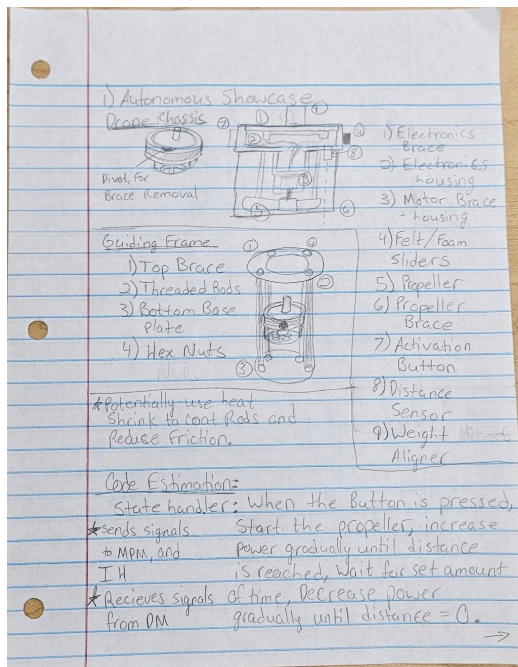 1) Autonomous Showcase
Drone Chassis
Divot, for
Brace Removal
7 1 9 4
2 8
3
5 6
1) Electronics
Brace
2) Electronics
housing
3) Motor Brace
+ housing
4) Felt/Foam
Sliders
5) Propeller
6) Propeller
Brace
7) Activation
Button
8) Distance
Sensor
9) Weight
Aligner
Guiding Frame
1) Top Brace
2) Threaded Rods
3) Bottom Base
Plate
4) Hex Nuts
1 4
2
3
*Potentially use heat
Shrink to coat Rods and
Reduse Friction.
Code Estimation:
State handler: When the Button is pressed,
Start the propeller, increase
power gradually until distance
is reached, Wait for set amount
of time, Decrease power
gradually until distance = 0.
*sends signals
to MPM, and
IH
*Recieves signals
from DM
→